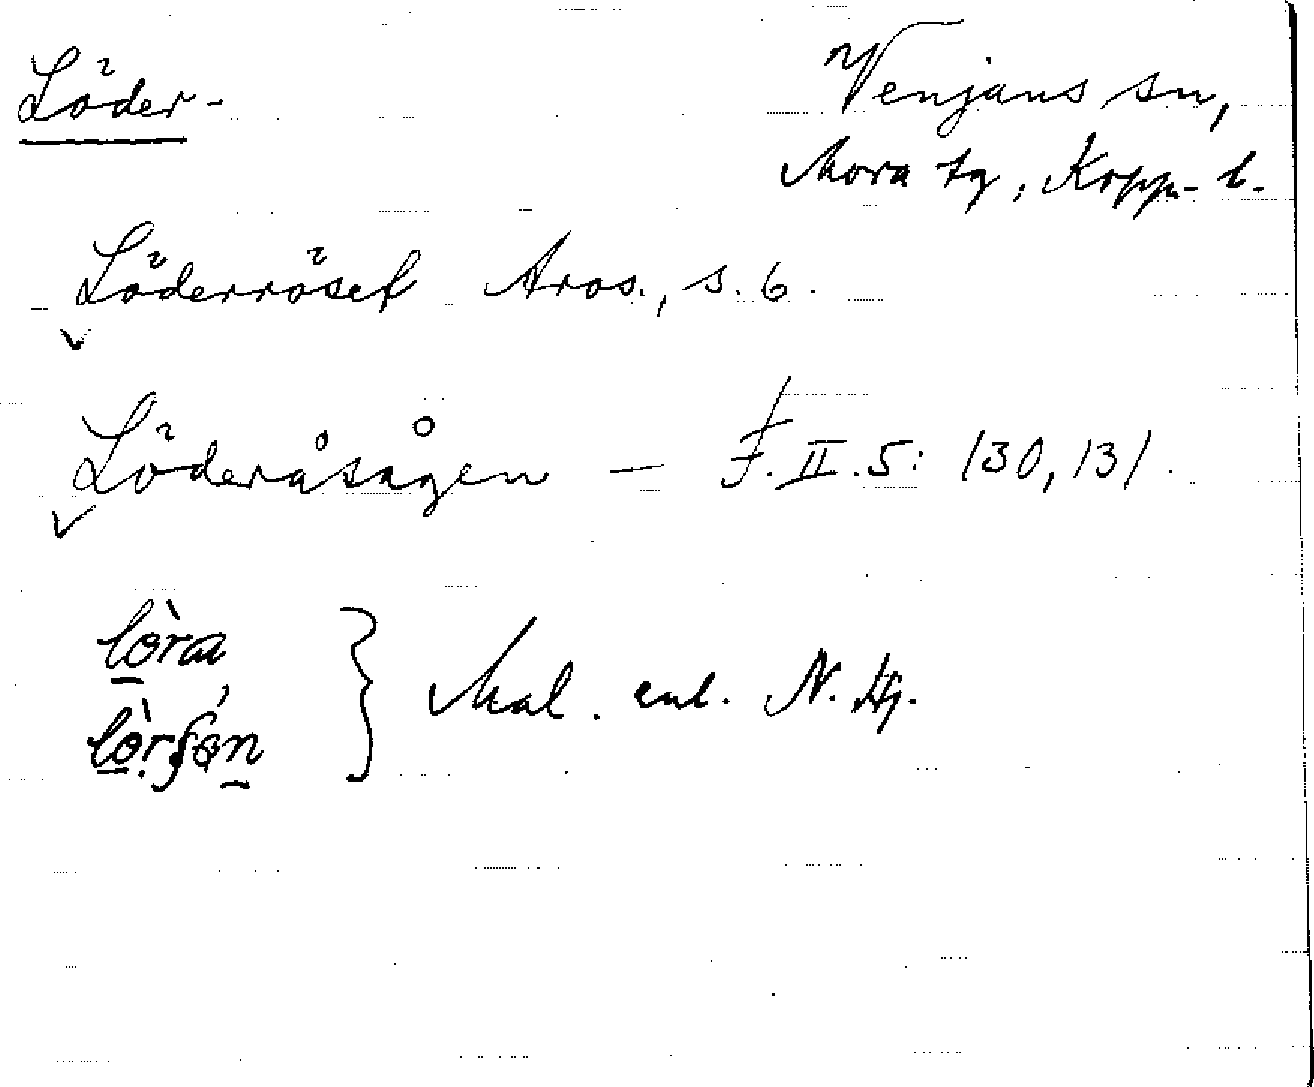 Löder-
Venjans sn,
Mora tg, Kopp. l.
Löderröset Aros., s. 6.
Löderåsågen — F. II. 5: 130, 131.
lòra
Mal. enl. N. Hg.